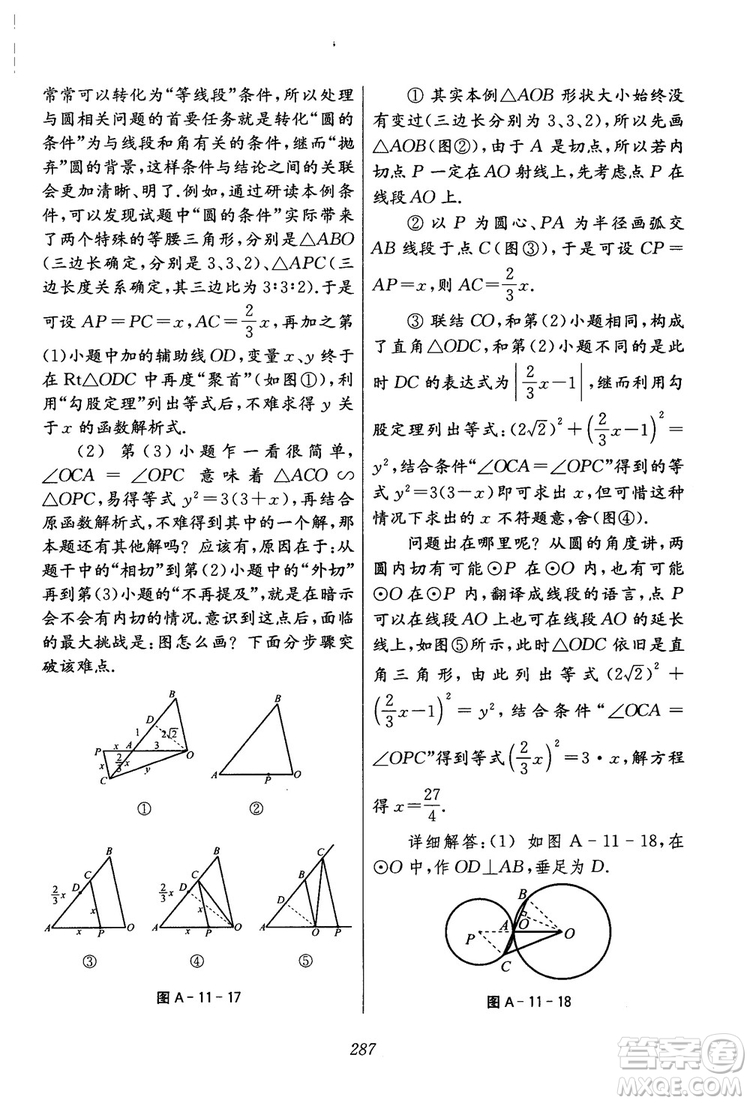 常常可以转化为“等线段”条件,所以处理
与圆相关问题的首要任务就是转化“圆的
条件”为与线段和角有关的条件,继而“抛
弃”圆的背景,这样条件与结论之间的关联
会更加清晰、明了.例如,通过研读本例条
件,可以发现试题中“圆的条件”实际带来
了两个特殊的等腰三角形,分别是△ABO
(三边长确定,分别是 3、3、2),△APC(三
边长度关系确定,其三边之比为 3∶3∶2).于是
可设 AP=PC=x,AC=2/3x,再加之第
(1)小题中加的辅助线OD,变量 x、y 终于
在 Rt△ODC 中再度“聚首”(如图①),利
用“勾股定理”列出等式后,不难求得 y 关
于 x 的函数解析式.
(2) 第(3)小题乍一看很简单,
∠OCA = ∠OPC 意味着△ACO∽
△OPC,易得等式 y²=3(3+x),再结合
原函数解析式,不难得到其中的一个解,那
本题还有其他解吗?应该有,原因是:从
题干中的“相切”到第(2)小题中的“外切”
再到第(3)小题的“不再提及”,就是在暗示
会不会有内切的情况.意识到这点后,面临
的最大挑战是:图怎么画?下面分步骤突
破该难点.
B D 1 2√2 P x A 3 O 2/3x y C
①
B A P O
②
B C 2/3x D x A x P O
③
B C 2/3x D A x P O
④
C B D A O P
⑤
图 A-11-17
① 其实本例△AOB 形状大小始终没
有变过(三边长分别为 3、3、2),所以先画
△AOB(图②),由于 A 是切点,所以若内
切,点 P 一定在 AO 射线上,先考虑点 P 在
线段 AO 上.
② 以 P 为圆心、PA 为半径画弧交
AB 线段于点 C(图③),于是可设 CP=
AP=x,则 AC=2/3x.
③ 联结 CO,和第(2)小题相同,构成
了直角△ODC,和第(2)小题不同的是此
时 DC 的表达式为|2/3x-1|,继而利用勾
股定理列出等式:(2√2)²+(2/3x-1)²=
y²,结合条件“∠OCA=∠OPC”得到的等
式 y²=3(3-x)即可求出 x,但可惜这种
情况下求出的 x 不符题意,舍(图④).
问题出在哪里呢?从圆的角度讲,两
圆内切有可能⊙P 在⊙O 内,也有可能
⊙O 在⊙P 内,翻译成线段的语言,点 P
可以在线段AO上,也可以在AO的延长
线上,如图⑤所示,此时△ODC 依旧是直
角三角形,由此列出等式(2√2)²+
(2/3x-1)²=y²,结合条件“∠OCA=
∠OPC”得到等式(2/3x)²=3·x,解方程
得 x=27/4.
详细解答:(1) 如图 A-11-18,在
⊙O 中,作 OD⊥AB,垂足为 D.
B P A O C
图 A-11-18
287
答案圈